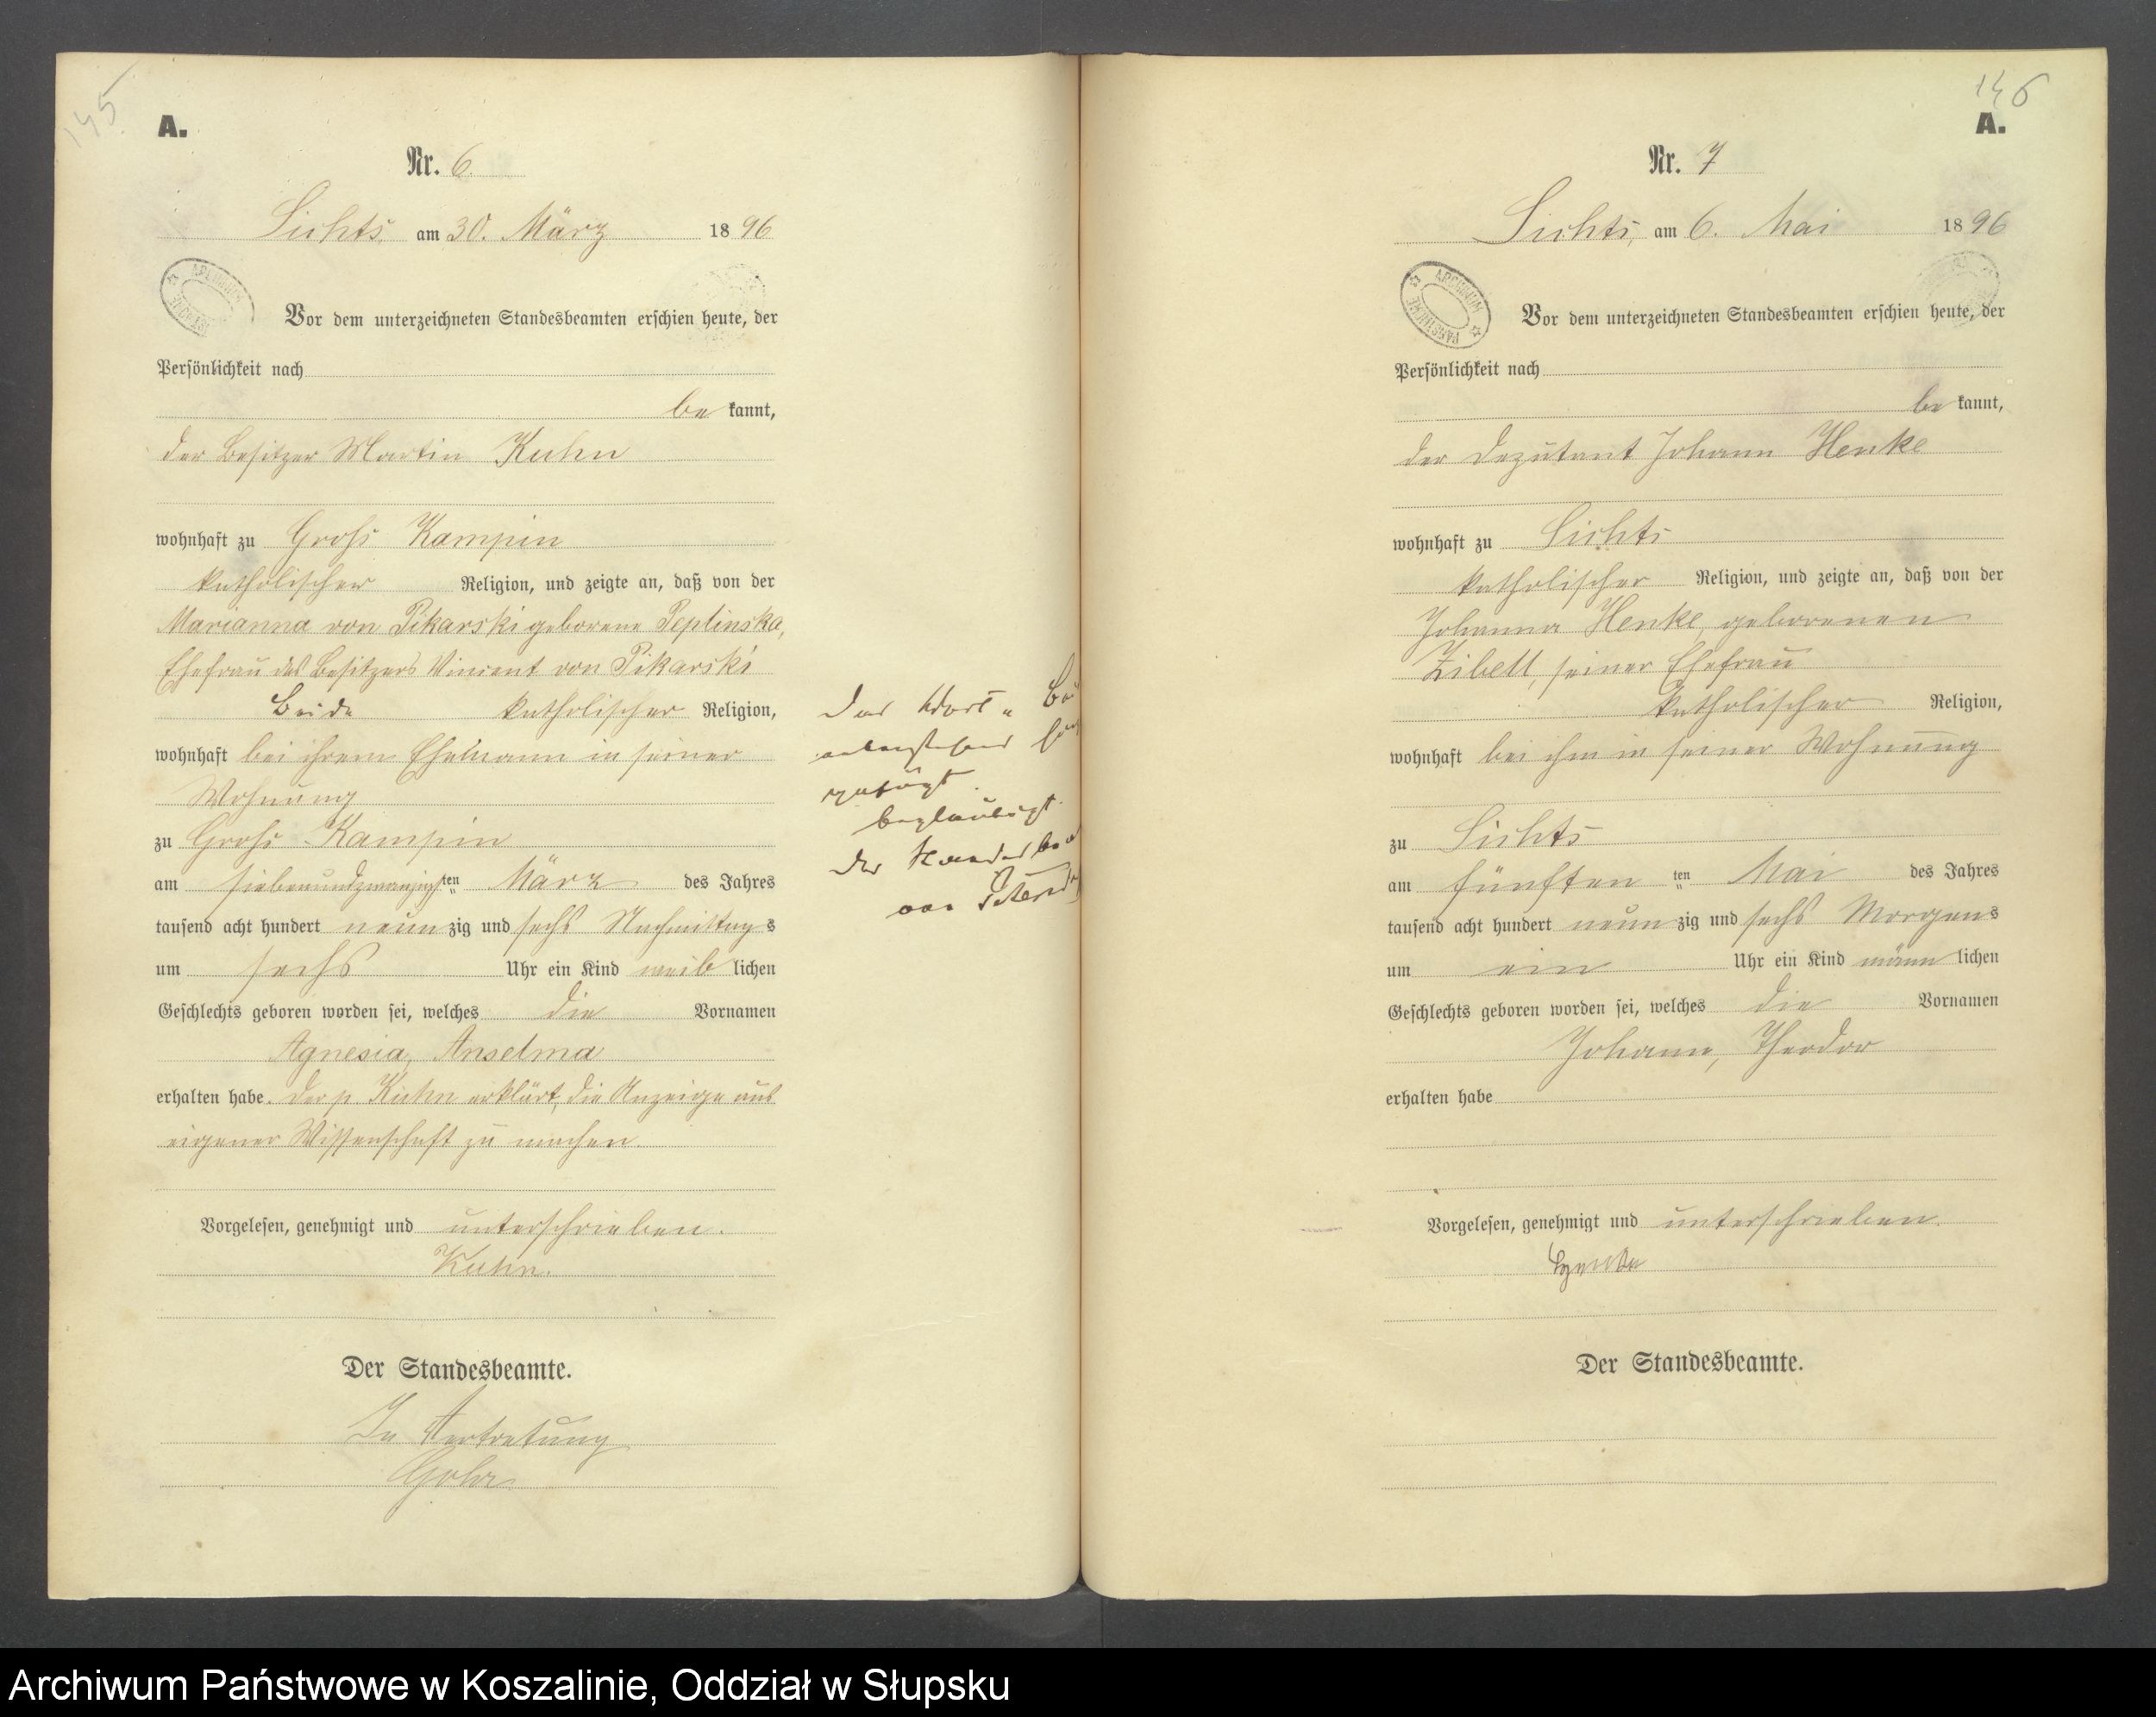 145
A.
Nr. 6.
Lichts am 30. März 1896
Vor dem unterzeichneten Standesbeamten erschien heute, der
Persönlichkeit nach
be kannt,
der Besitzer Martin Kuhn
wohnhaft zu Groß Kampin
katholischer Religion, und zeigte an, daß von der
Marianna von Pikarski geborene Peplinska,
Ehefrau des Besitzers Vincent von Pikarski
Beide katholischer Religion,
wohnhaft bei ihrem Ehemann in seiner
Wohnung
zu Groß-Kampin
am siebenundzwanzigsten März des Jahres
tausend acht hundert neunzig und sechs Nachmittags
um sechs Uhr ein Kind weiblichen
Geschlechts geboren worden sei, welches die Vornamen
Agnesia, Anselma
erhalten habe. Der p. Kuhn erklärt, die Anzeige aus
eigener Wissenschaft zu machen.
Vorgelesen, genehmigt und unterschrieben.
Kuhn.
Der Standesbeamte.
In Vertretung
Das Wort „
beglaubigt.
Der
von
146
A.
Nr. 7
Lichts, am 6. Mai 1896
ARCHIWUM PAŃSTWOWE
Vor dem unterzeichneten Standesbeamten erschien heute, der
Persönlichkeit nach
be kannt,
der Deputant Johann Henke
wohnhaft zu Lichts
katholischer Religion, und zeigte an, daß von der
Johanna Henke, geborenen
Zibell, seiner Ehefrau
katholischer Religion,
wohnhaft bei ihm in seiner Wohnung
zu Lichts
am fünften ten Mai des Jahres
tausend acht hundert neunzig und sechs Morgens
um ein Uhr ein Kind männlichen
Geschlechts geboren worden sei, welches die Vornamen
Johann, Theodor
erhalten habe
Vorgelesen, genehmigt und unterschrieben.
Der Standesbeamte.
Archiwum Państwowe w Koszalinie, Oddział w Słupsku